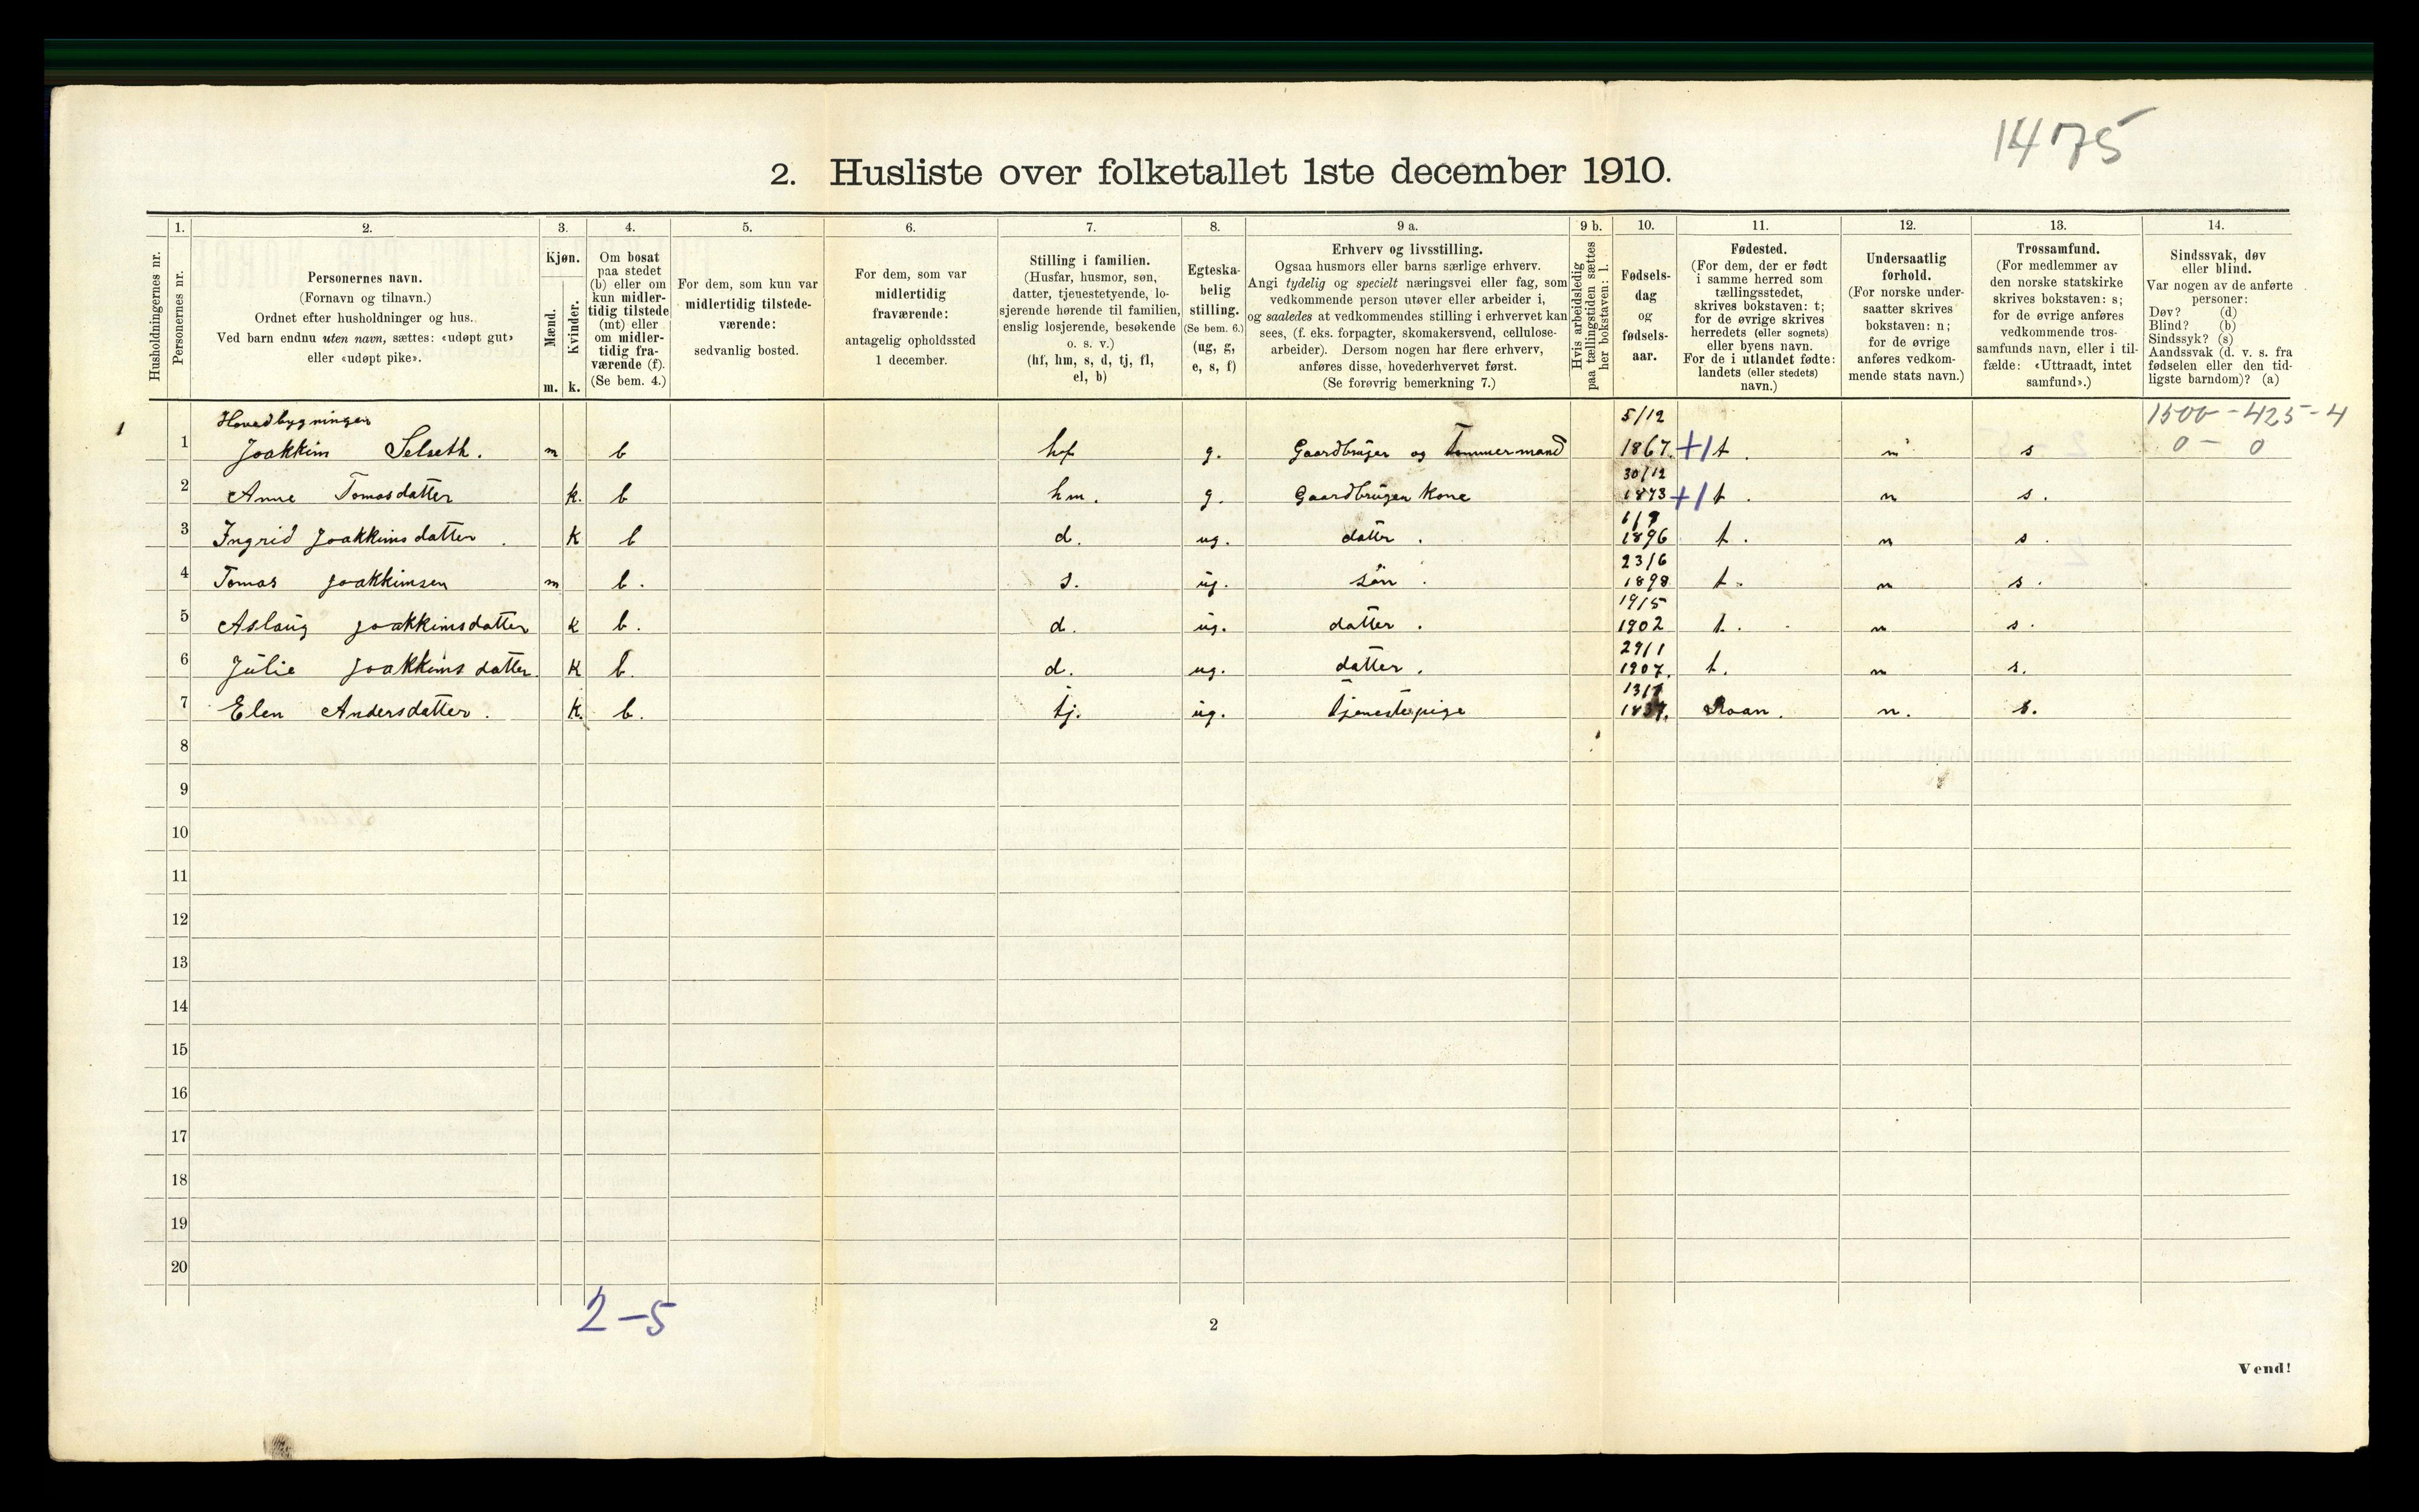 1475
2. Husliste over folketallet 1ste december 1910.
Husholdningernes nr.
1.
Personernes nr.
2.
Personernes navn.
(Fornavn og tilnavn.)
Ordnet efter husholdninger og hus.
Ved barn endnu uten navn, sættes: «udøpt gut»
eller «udøpt pike».
3.
Kjøn.
Mænd.
Kvinder.
m. k.
4.
Om bosat
paa stedet
(b) eller om
kun midler-
tidig tilstede
(mt) eller
om midler-
tidig fra-
værende (f).
(Se bem. 4.)
5.
For dem, som kun var
midlertidig tilstede-
værende:
sedvanlig bosted.
6.
For dem, som var
midlertidig
fraværende:
antagelig opholdssted
1 december.
7.
Stilling i familien.
(Husfar, husmor, søn,
datter, tjenestetyende, lo-
sjerende hørende til familien,
enslig losjerende, besøkende
o. s. v.)
(hf, hm, s, d, tj, fl,
el, b)
8.
Egteska-
belig
stilling.
(Se bem. 6.)
(ug, g,
e, s, f)
9 a.
Erhverv og livsstilling.
Ogsaa husmors eller barns særlige erhverv.
Angi tydelig og specielt næringsvei eller fag, som
vedkommende person utøver eller arbeider i,
og saaledes at vedkommendes stilling i erhvervet kan
sees, (f. eks. forpagter, skomakersvend, cellulose-
arbeider). Dersom nogen har flere erhverv,
anføres disse, hovederhvervet først.
(Se forøvrig bemerkning 7.)
9 b.
Hvis arbeidsledig
paa tællingstiden sættes
her bokstaven: l.
10.
Fødsels-
dag
og
fødsels-
aar.
11.
Fødested.
(For dem, der er født
i samme herred som
tællingsstedet,
skrives bokstaven: t;
for de øvrige skrives
herredets (eller sognets)
eller byens navn.
For de i utlandet fødte:
landets (eller stedets)
navn.)
12.
Undersaatlig
forhold.
(For norske under-
saatter skrives
bokstaven: n;
for de øvrige
anføres vedkom-
mende stats navn.)
13.
Trossamfund.
(For medlemmer av
den norske statskirke
skrives bokstaven: s;
for de øvrige anføres
vedkommende tros-
samfunds navn, eller i til-
fælde: «Uttraadt, intet
samfund».)
14.
Sindssvak, døv
eller blind.
Var nogen av de anførte
personer:
Døv? (d)
Blind? (b)
Sindssyk? (s)
Aandssvak (d. v. s. fra
fødselen eller den tid-
ligste barndom)? (a)
Hovedbygningen 5/12 1500 - 425 - 4
1 1 Joakkim Selseth. m b hf g. Gaardbruger og Tømmermand 1867. +1 t. n s 0 - 0
30/12
2 Anne Tomasdatter k. b hm. g. Gaardbrugen Kone 1873 +1 t. n s.
3 Ingrid Joakkimsdatter. k b d. ug. datter. 1896 t. n s.
23/6
4 Tomas Joakkimsen m b. s. ug. søn. 1898 t. n s.
19/5
5 Aslaug Joakkimsdatter k b. d. ug. datter. 1902 t. n s.
29/1
6 Julie Joakkimsdatter. k b. d. ug. datter. 1907. t. n s.
7 Elen Andersdatter. k. b. tj. ug. tjenestepige Roan. n. s.
8
9
10
11
12
13
14
15
16
17
18
19
20
2-5
2
Vend!